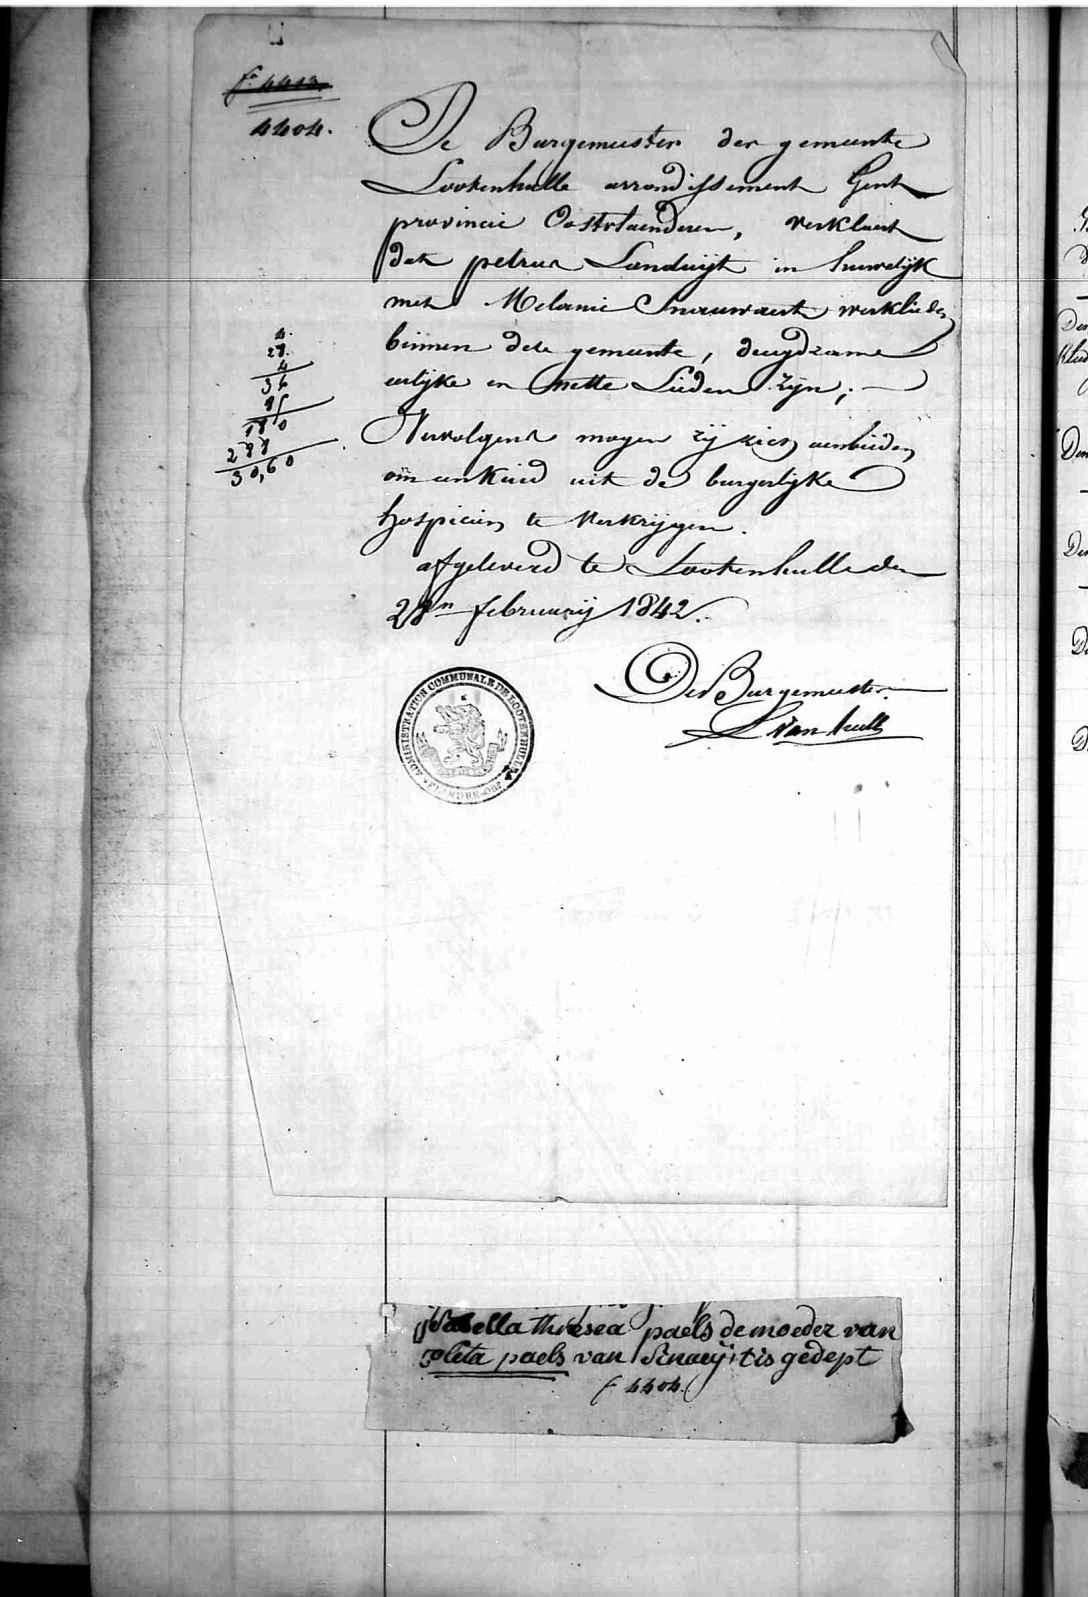 fo 4413.
4404.
De Burgemeester der gemeente
Lootenhulle arrondissement Gent
provincie Oostvlaenderen, verklaert
dat petrus Landuijt in huwelijk
met Melanie Snauwaert werklieden
binnen deze gemeente, deugdzame
eerlijke en nette Lieden zijn;
Vervolgens mogen zij zich aenbieden
om een Kind uit de burgerlijke
hospicien te verkrijgen.
afgeleverd te Lootenhulle den
28en februarij 1842.
De Burgemeester.
L Van hulle
4.
28.
4
36
85
180
288
30,60
ADMINISTRATION COMMUNALE DE LOOTENHULLE
FLANDRE-ORle
isabella theresea paels de moeder van
coleta paels van Sinaeij tis gedept
f 4404.